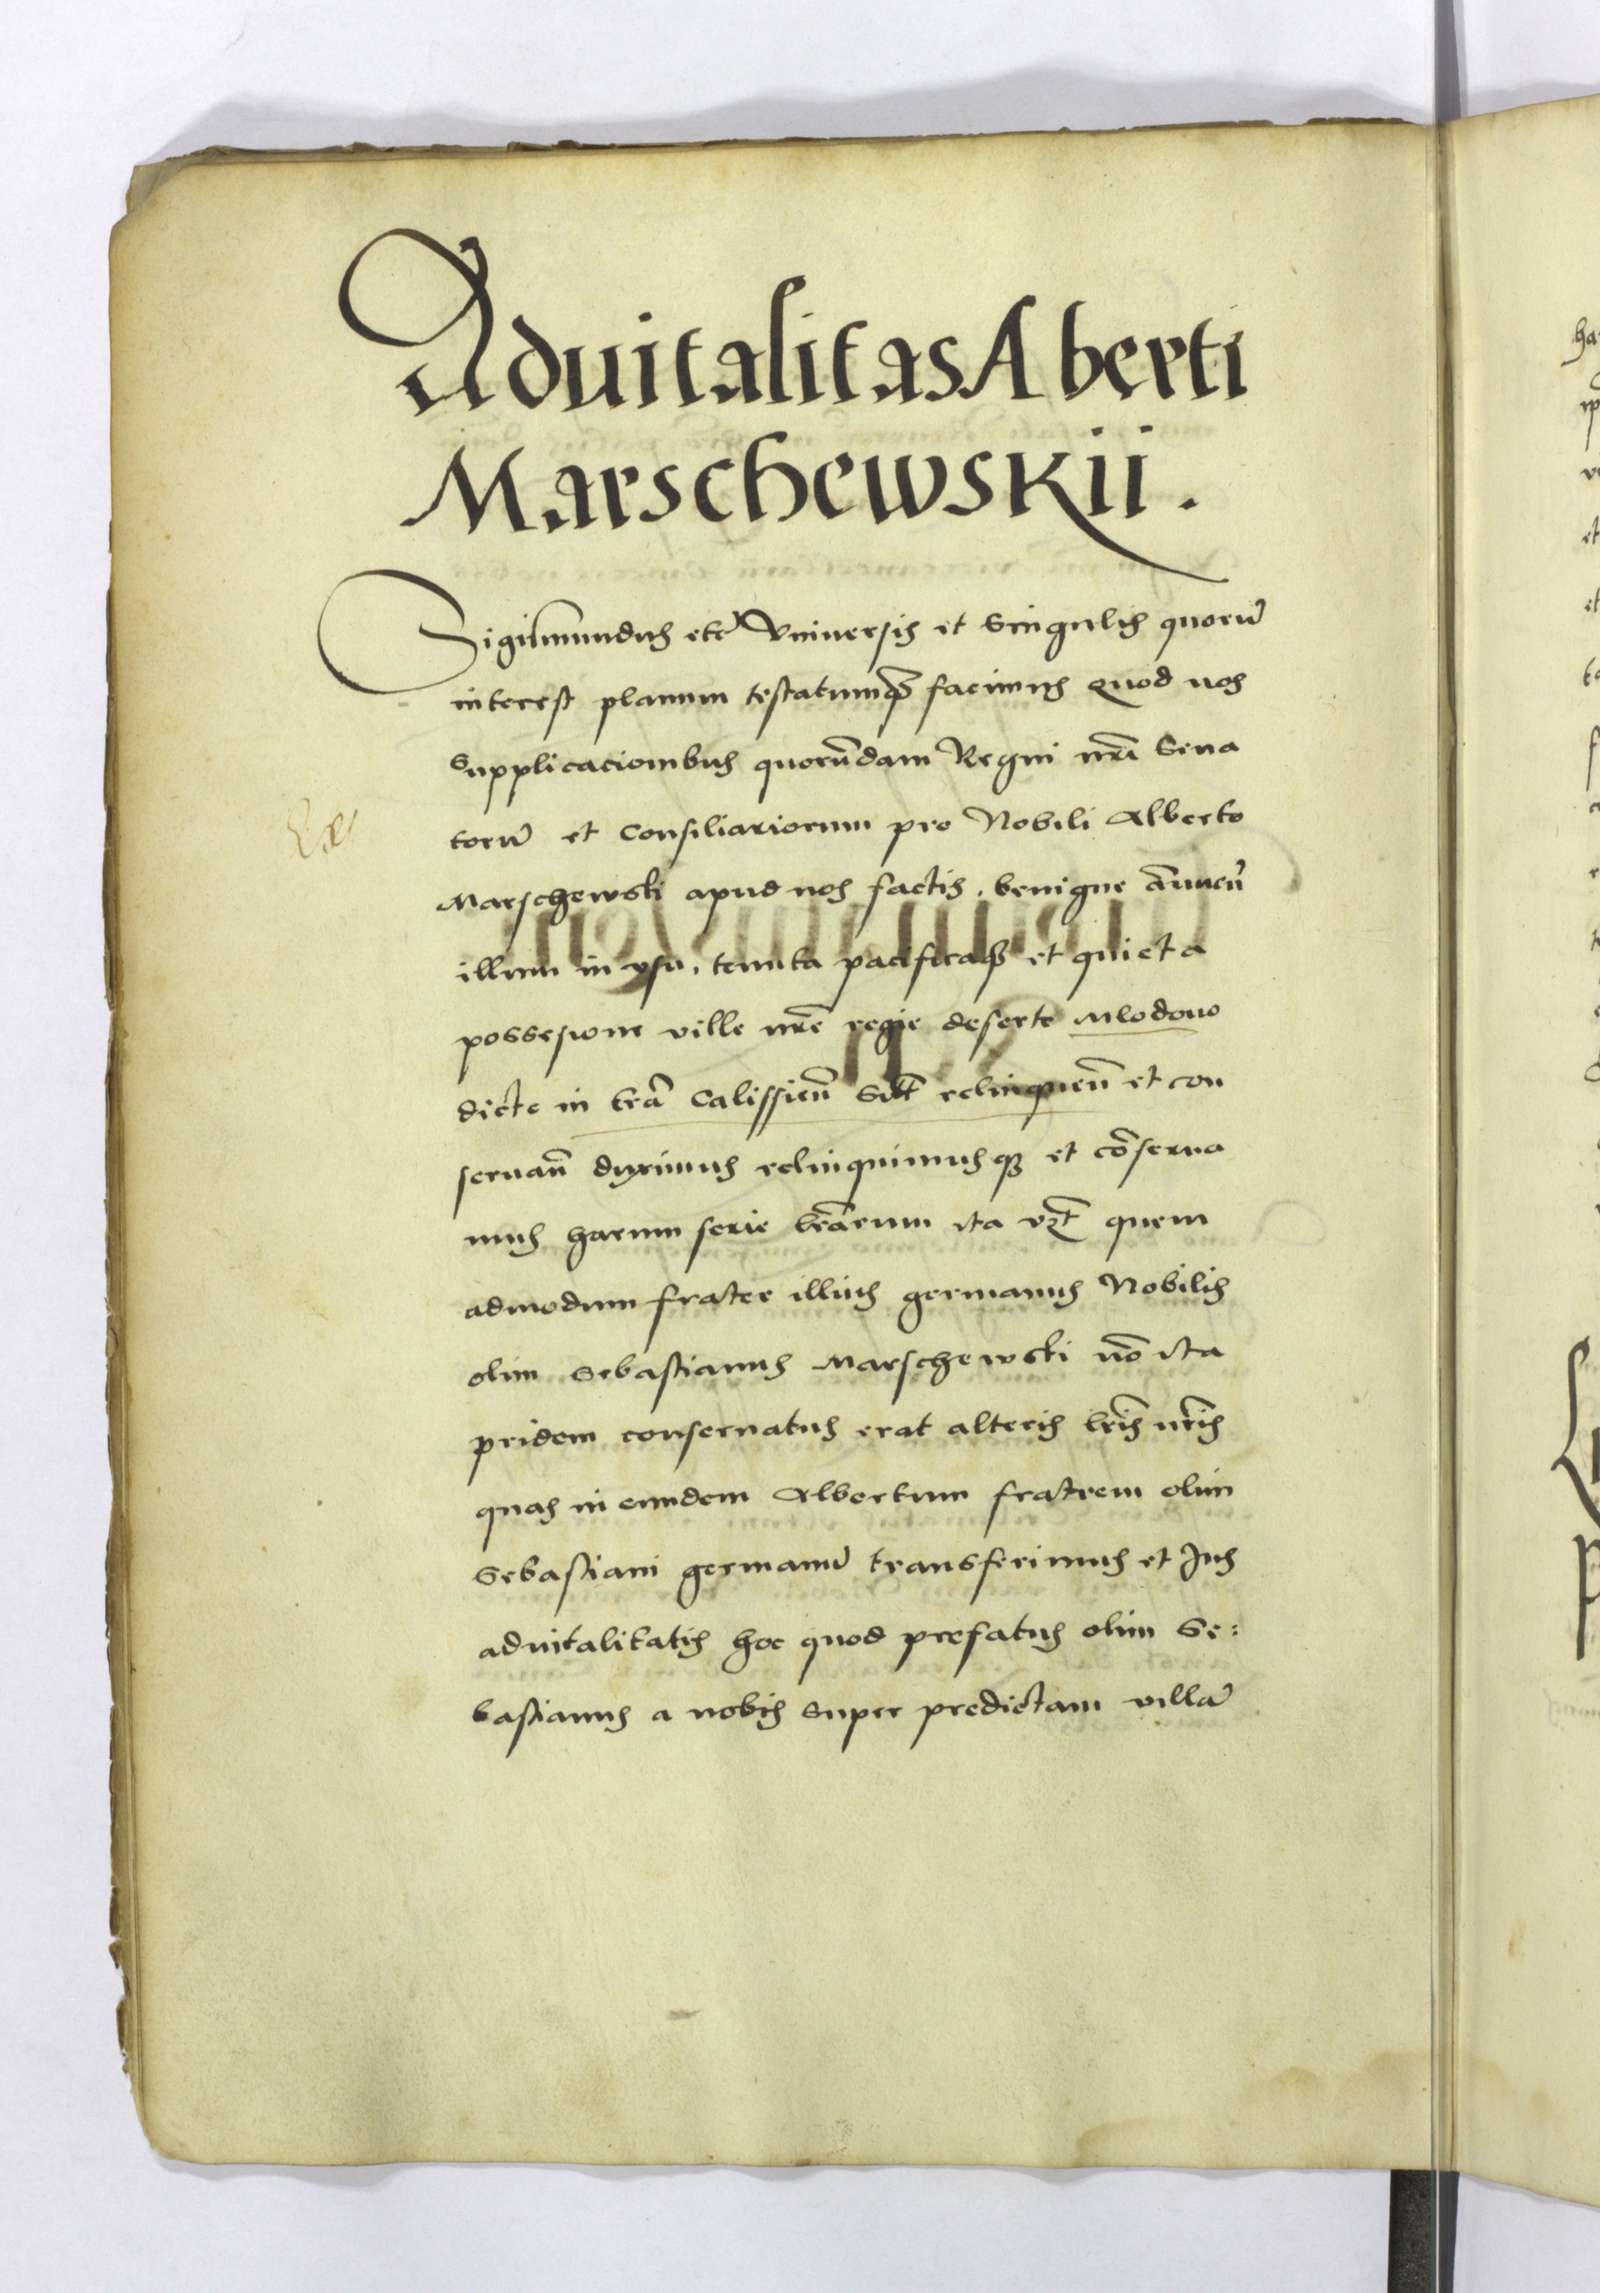 Aduitalitas Aberti
Marschewskii.
Sigismundus etc̃ Vniuersis et Singulis quorũ
interest planum testatumqꝫ facimus Quod nos
Supplicacionibus quorũdam Regni nr̃i Sena
torũ et Consiliariorum pro Nobili Alberto
Marschewski apud nos factis, benigne ãnuen̄
illum in vsu, tenuta pacificaqꝫ et quieta
possesione ville nr̃e regie deserte Mlodouo
dicte in tr̃a Calissien̄ Sit̃ relinquen̄ et con
seruan̄ duximus relinquimusqꝫ et cõserua
mus harum serie tr̃arum ita vꝫt quem
admodum frater illius germanus Nobilis
olim Sebastianus Marschewski nõ ita
pridem conseruatus erat alteris lr̃is nr̃is
quas in eundem Albertum fratrem olim
Sebastiani germanũ transferimus et Jus
aduitalitatis hoc quod prefatus olim Se:
bastianus a nobis super predictam villã